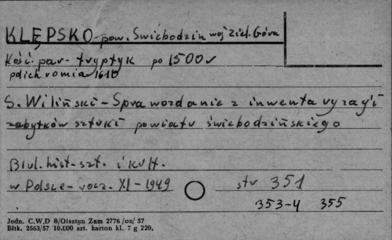 KLĘPSKO - pow. Świebodzin woj Ziel. Góra
Kość. par - tryptyk po 1500 r
polichromia 1610
S. Wiliński - Sprawozdanie z inwentaryzacji
zabytków sztuki powiatu świebodzińskiego
Biul. hist. szt. i kult.
w Polsce - rocz. XI - 1949 str 351
353-4 355
Jedn. C.W,D 8/Olsztyn Zam 2776/on/57
Bltk. 2563/57 10.000 szt. karton kl. 7 g 220.